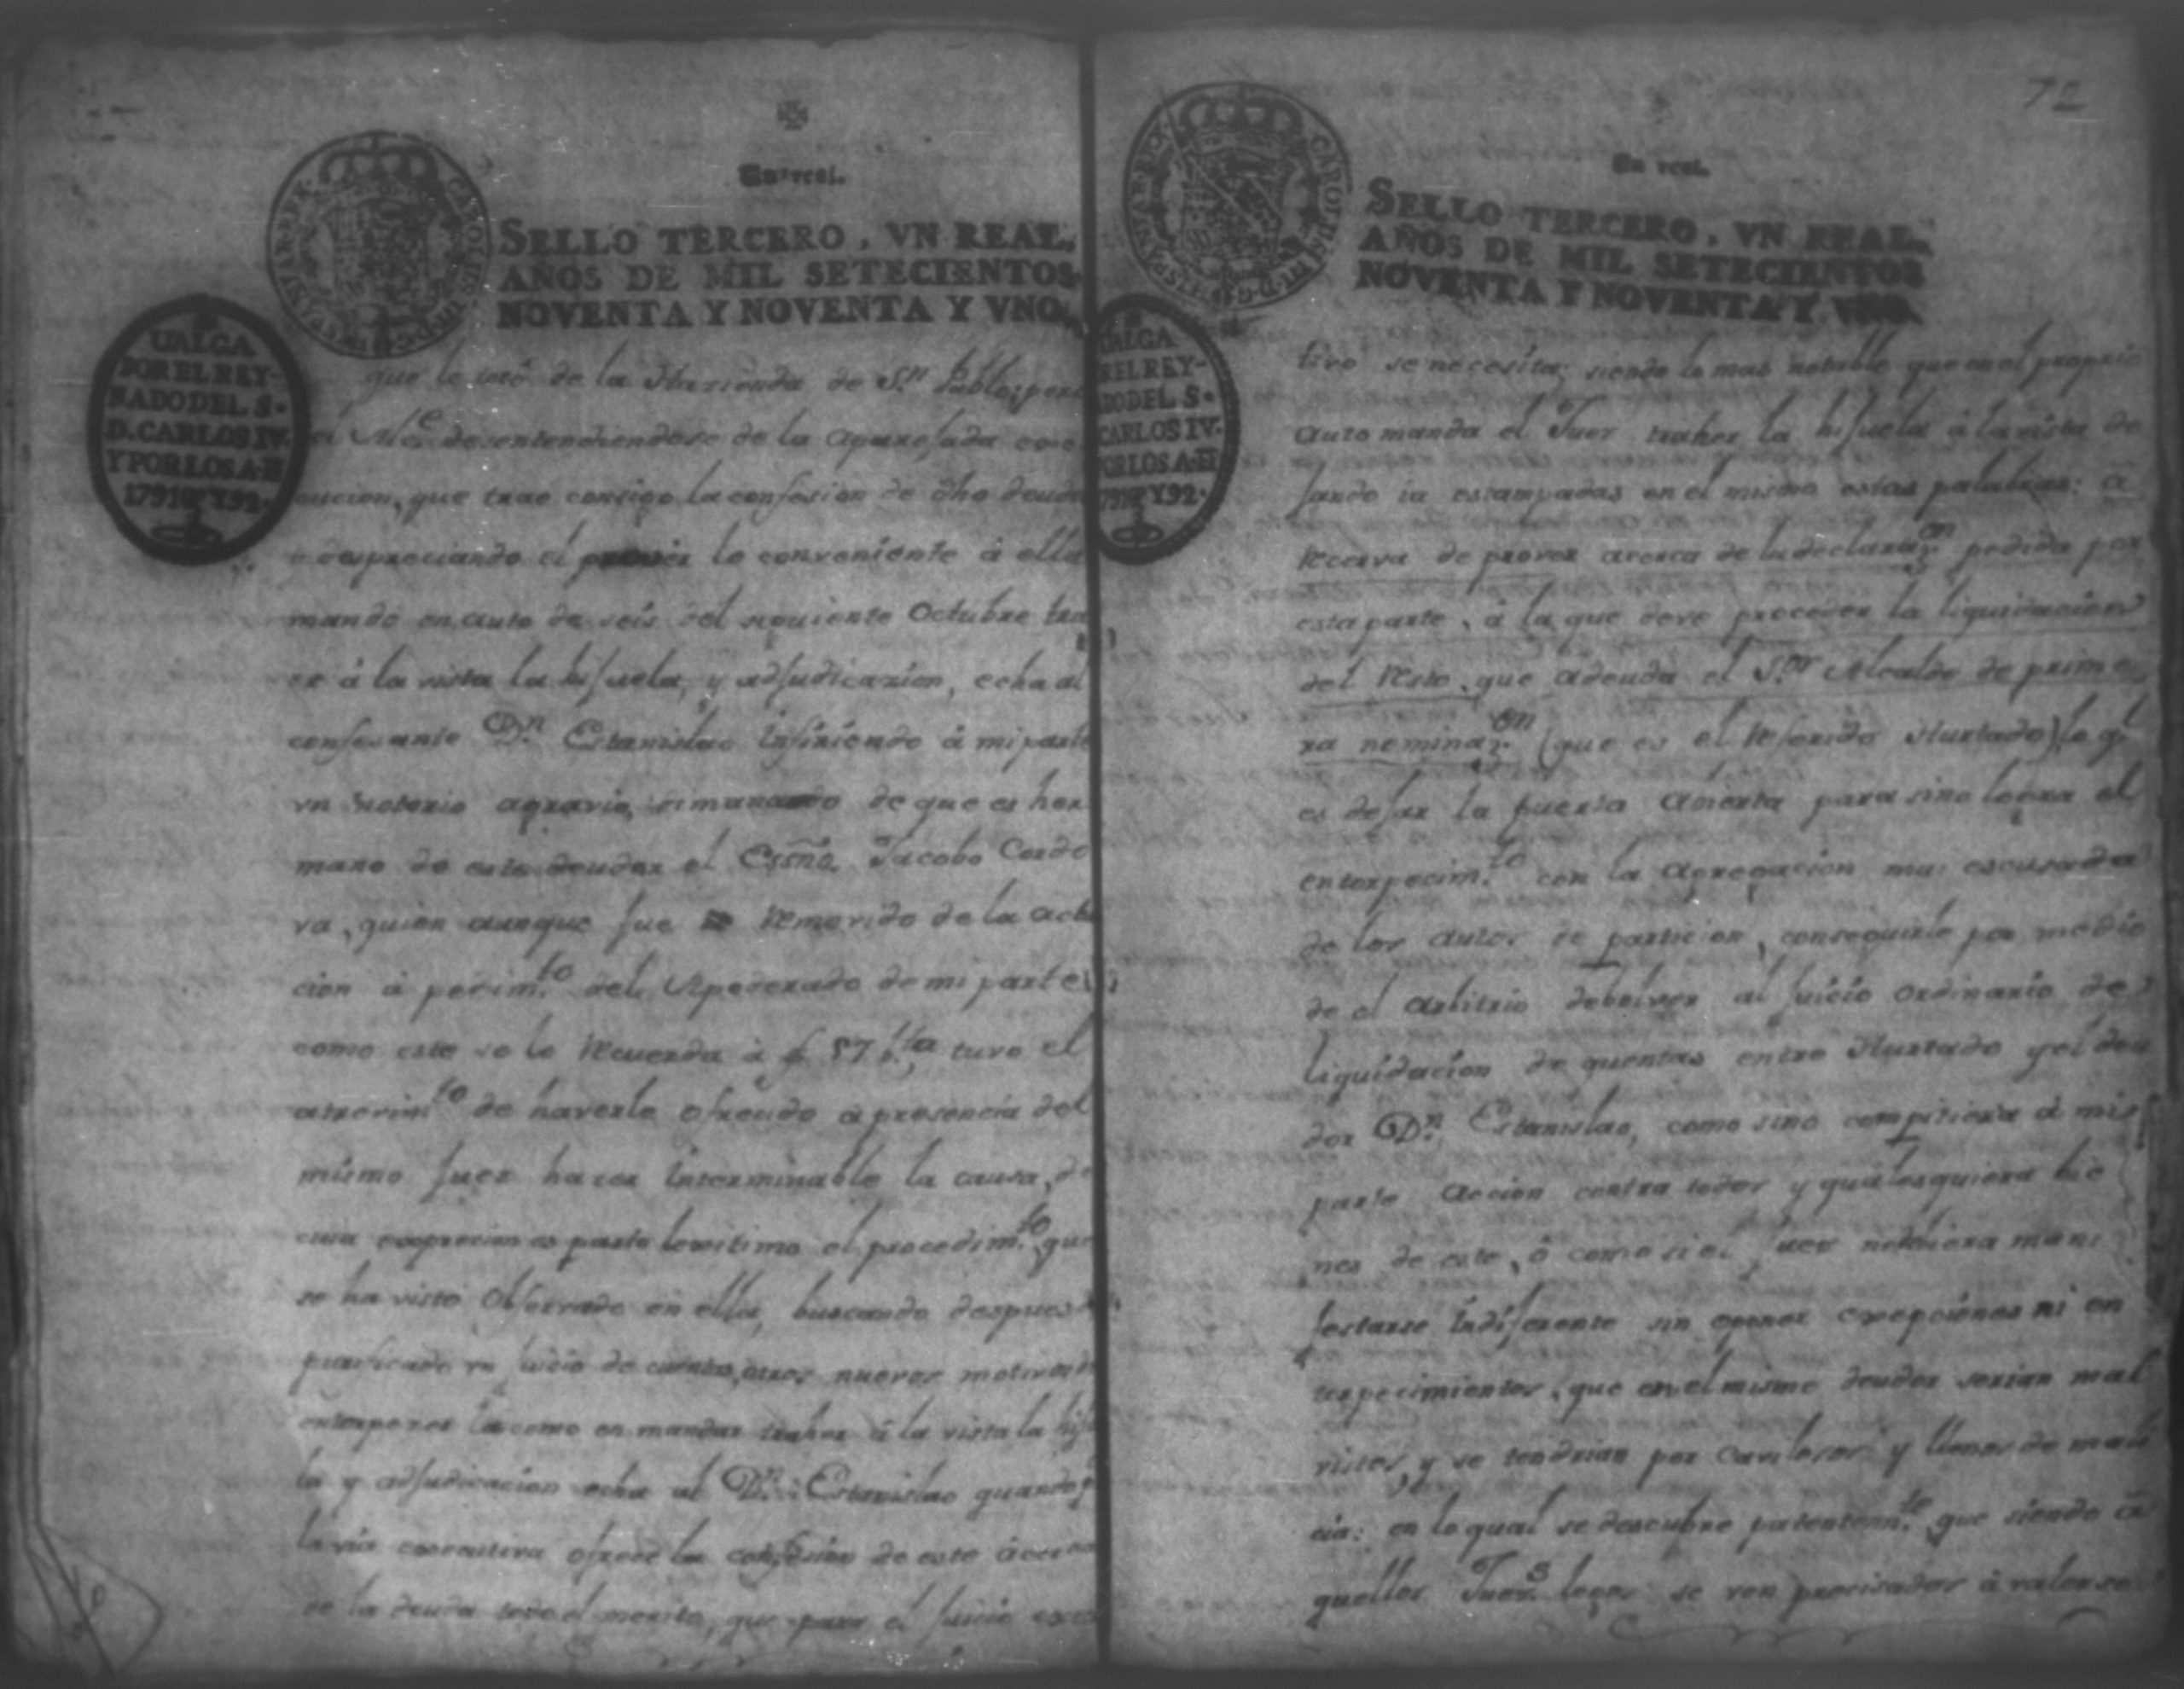 Un real.
SELLO TERCERO, VN REAL,
AÑOS DE MIL SETECIENTOS
NOVENTA Y NOVENTA Y VNO.
UALGA
POR EL REY-
NADO DEL S.
D. CARLOS IV.
Y POR LOS A. D
1791 Y 92.
que le tocó de la Hazienda de Sn. Pablo; pero
el Alce. desentendiendose de la aparejada exe
cucion, que trae consigo la confesion de dho deudor
despreciando el lo conveniente á ella
mando en auto de seis del siguiente Octubre tra
er á la vista la hijuela, y adjudicazion, echa al
confesante Dn. Estanislao infiriendo á mi parte
vn notorio agravio, dimanado de que es her
mano de este deudor el Essno. Jacobo Cordo
va, quien aunque fue removido de la actua
cion á pedimto. del Apoderado de mi parte
como este se lo recuerda á f. 57 bta. tuvo el
atrevimto. de haverle ofrecido á presencia del
mismo Juez hazer interminable la causa, de
cuia es parto lexitimo el procedimto. que
se ha visto observado en ella, buscando despues
purificado vn juicio de cuentas, otros nuevos motivos
entorpecer la como en mandar traher á la vista la hijue
la y adjudicacion echa al Dn. Estanislao quando
la via executiva ofrece la confesion de este acerca
de la deuda todo el merito, que para el juicio execu
72
Un real.
SELLO TERCERO, VN REAL,
AÑOS DE MIL SETECIENTOS
NOVENTA Y NOVENTA Y VNO.
UALGA
REL REY-
DO DEL S.
CARLOS IV.
OR LOS A. D
1791 Y 92.
tivo se necesita; siendo lo mas notable que en el proprio
auto manda el Juez traher la hijuela á la vista de
jando ia estampadas en el mismo estas palabras: a
recerva de prover acerca de la declarazon. pedida por
esta parte, á la que deve preceder la liquidacion
del resto que adeuda el Sor. Alcalde de prime
ra nominazon. (que es el referido Hurtado) lo ql.
es dejar la puerta abierta para sino logra el
entorpecimto. con la agregacion mui escusada
de los autos de particion, conseguirlo por medio
de el arbitrio debolver al juicio ordinario de
liquidacion de quentas entre Hurtado y el deu
dor Dn. Estanislao, como sino compitiera á mi
parte accion contra todos y qualesquiera bie
nes de este, ó como si el Juez mani
festarse indiferente sin oponer excepciones ni en
torpecimientos, que en el mismo deudor serian mal
vistos, y se tendrian por cavilosos y llenos de mali
cia: en lo qual se descubre patentemte. que siendo a
quellos Juezs. legos se ven precisados á valerse